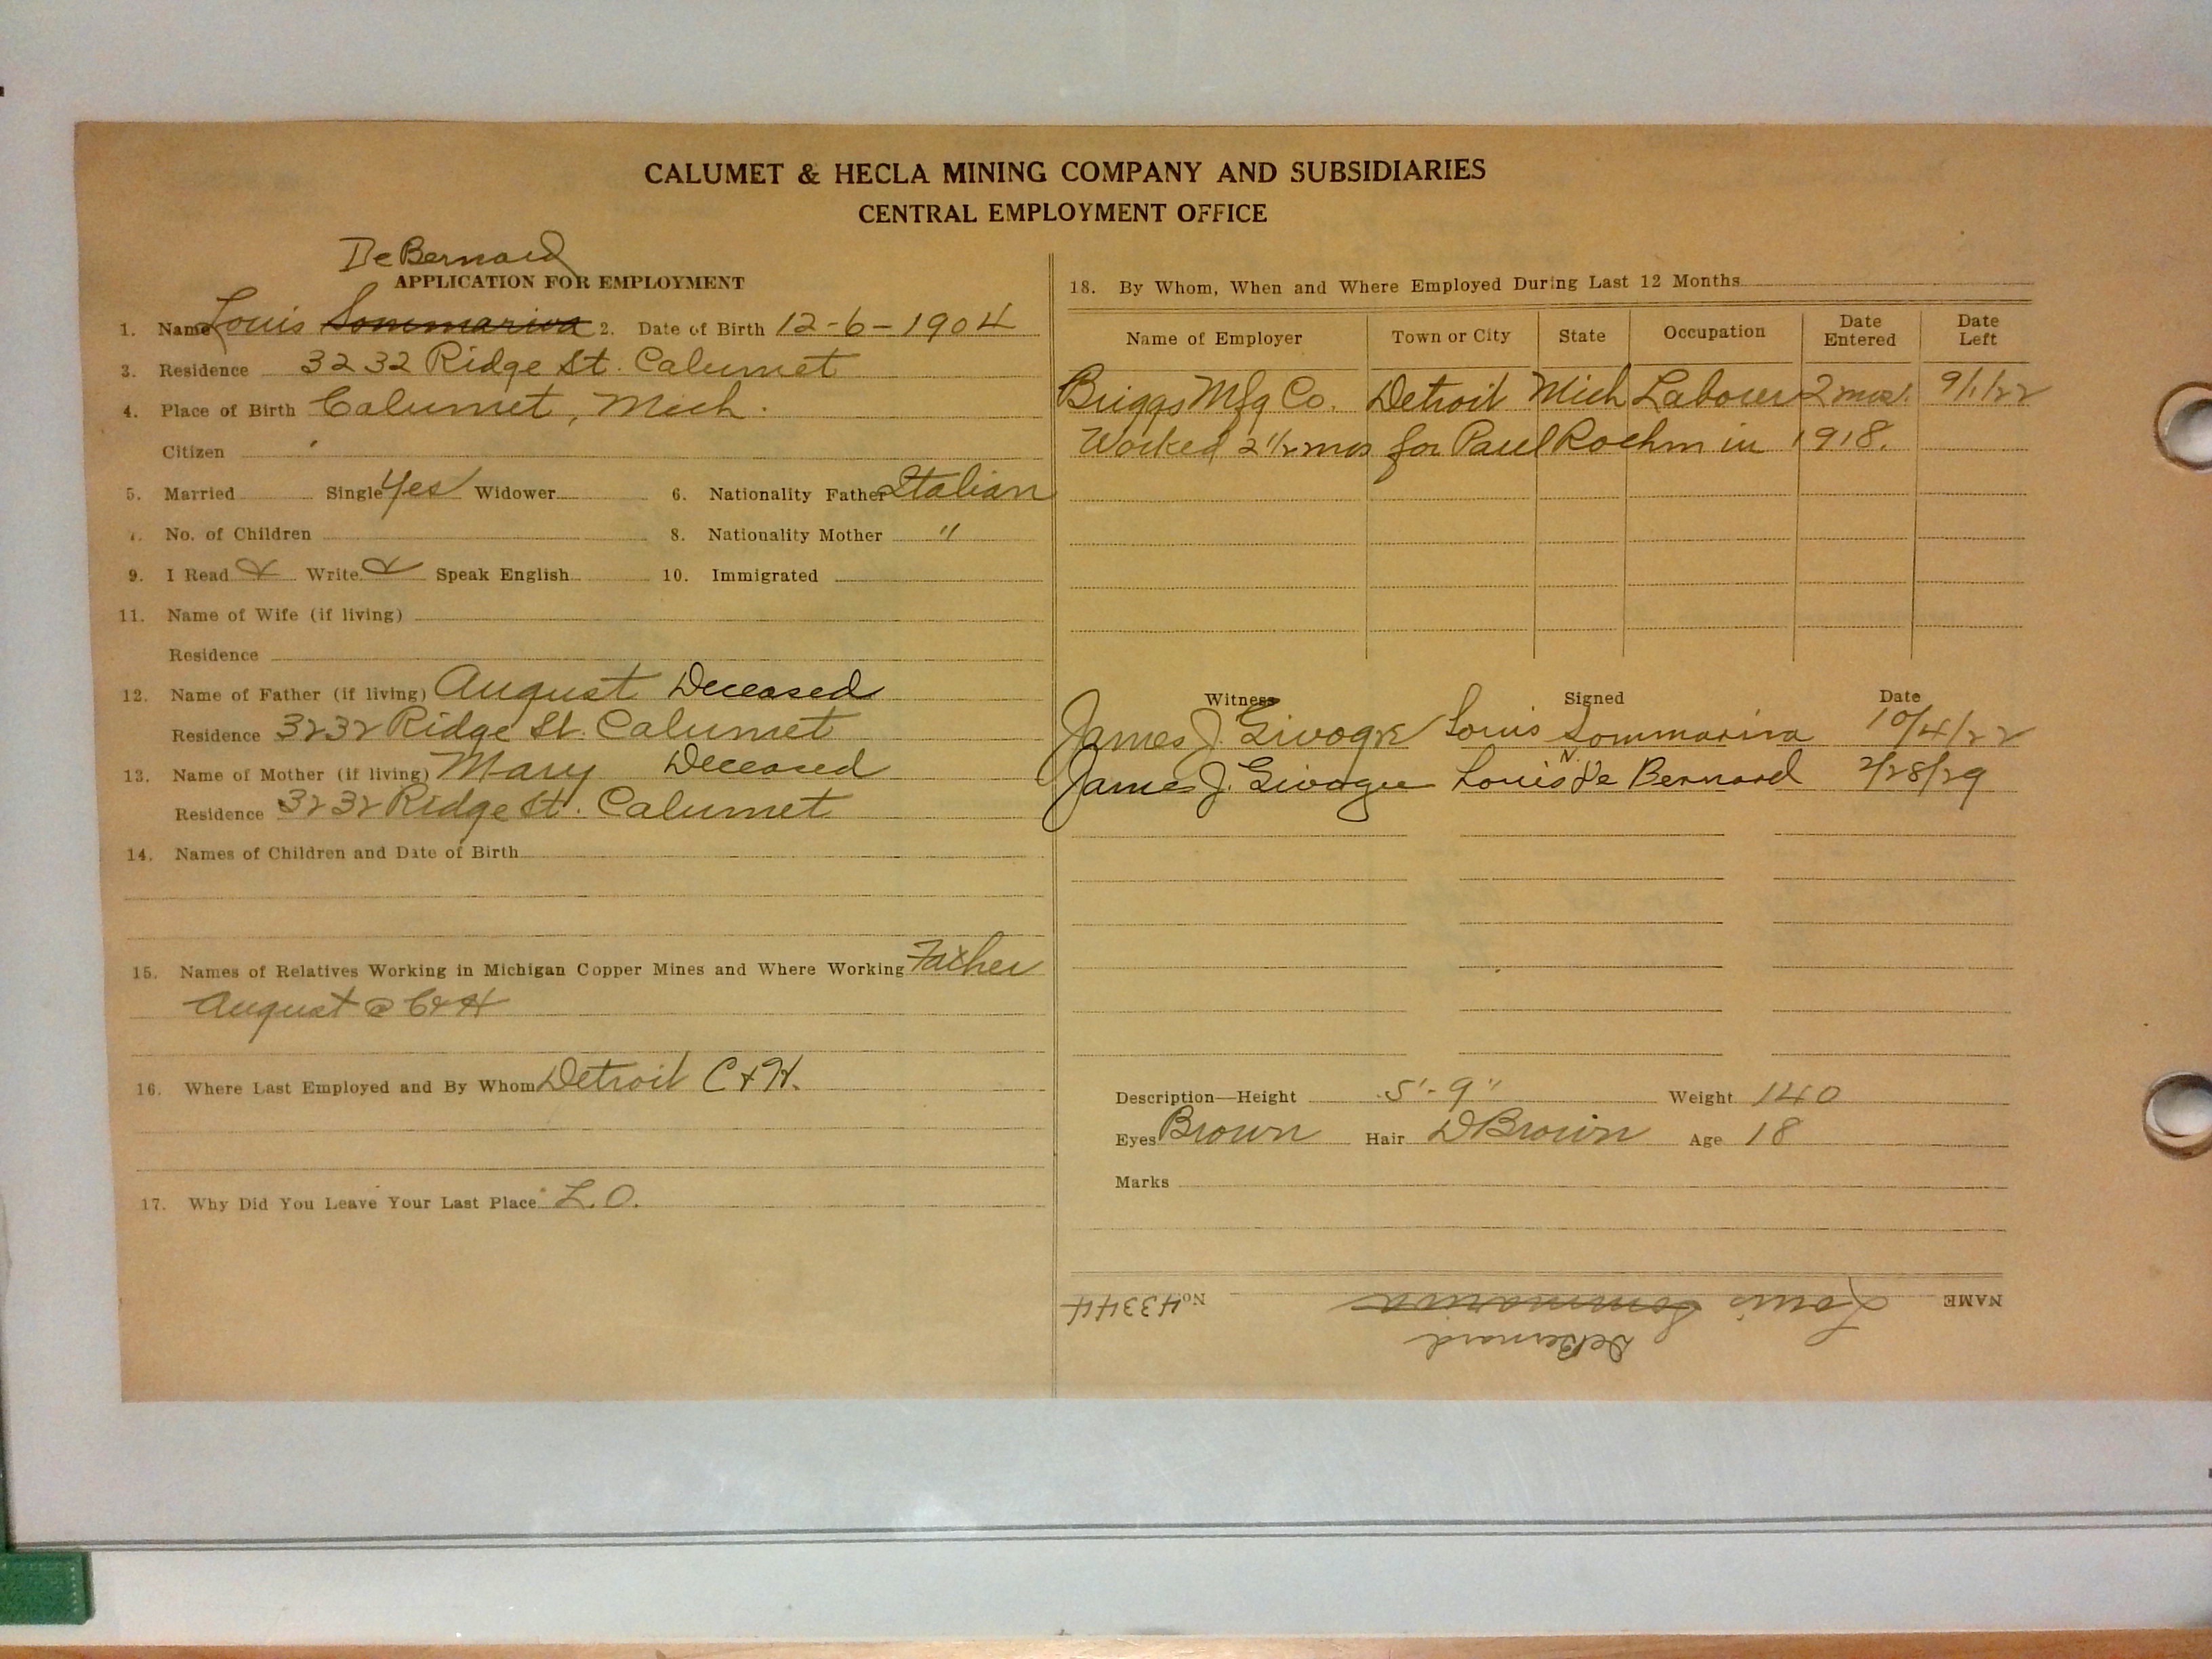 CALUMET & HECLA MINING COMPANY AND SUBSIDIARIES
CENTRAL EMPLOYMENT OFFICE
De Bernard
APPLICATION FOR EMPLOYMENT
1. Name Louis Sommariva 2. Date of Birth 12-6-1904
3. Residence 3232 Ridge St. Calumet
4. Place of Birth Calumet, Mich.
Citizen
5. Married Single Yes Widower 6. Nationality Father Italian
7. No. of Children 8. Nationality Mother "
9. I Read Write Speak English 10. Immigrated
11. Name of Wife (if living)
Residence
12. Name of Father (if living) August Deceased
Residence 3232 Ridge St. Calumet
13. Name of Mother (if living) Mary Deceased
Residence 3232 Ridge St. Calumet
14. Names of Children and Date of Birth
15. Names of Relatives Working in Michigan Copper Mines and Where Working Father
August @ C&H
16. Where Last Employed and By Whom Detroit C & H.
17. Why Did You Leave Your Last Place L.O.
18. By Whom, When and Where Employed During Last 12 Months
Name of Employer Town or City State Occupation Date Entered Date Left
Briggs Mfg Co. Detroit Mich Laborer 2 mos. 9/1/22
Worked 2 1/2 mos for Paul Roehm in 1918.
Witness Signed Date
James J. Louis Sommariva 10/4/22
James J. Louis N. De Bernard 2/28/29
Description—Height 5'-9" Weight 140
Eyes Brown Hair D Brown Age 18
Marks
NAME Louis Sommariva No 43344
DeBernard